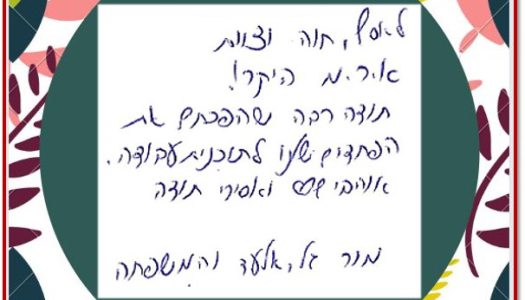 לאסף, חוה וצוות
א.י.ר.מ היקר!
תודה רבה שהפכתם את
הפחדים שלנו לתוכנית עבודה.
אוהבים ואסירי תודה
מור גל, אלעד והמשפחה